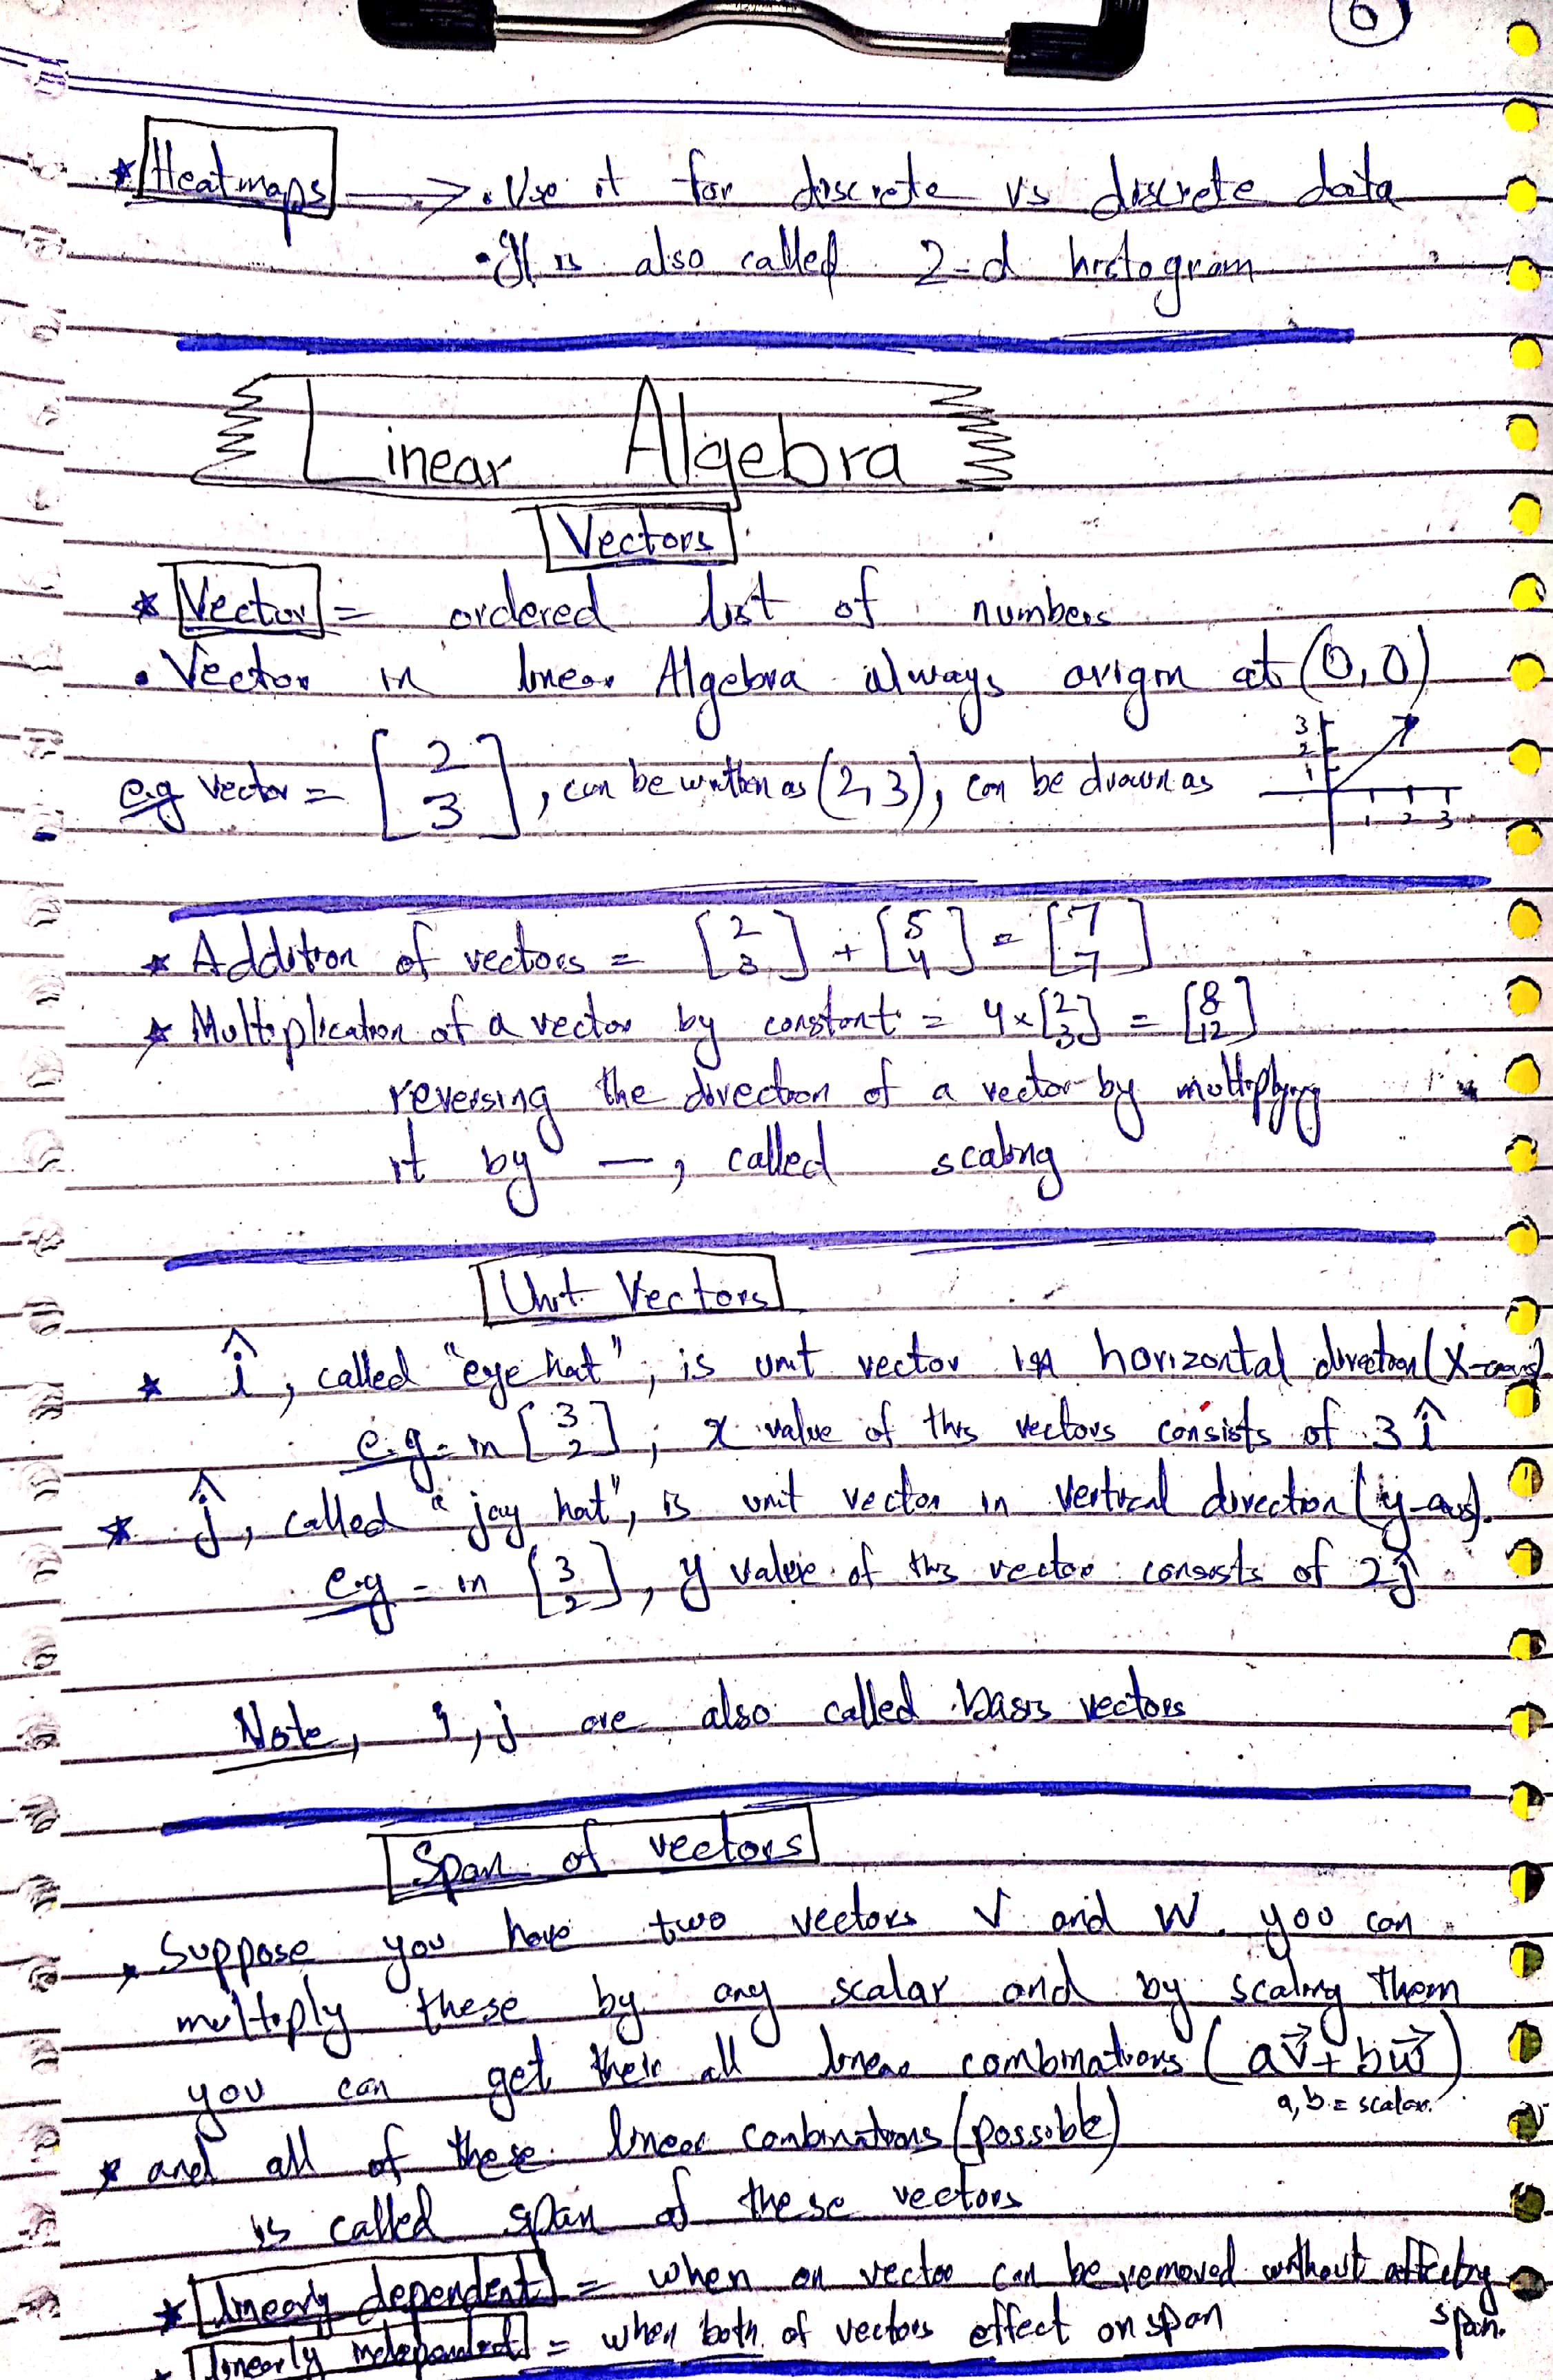 6
* Heatmaps → • Use it for discrete vs discrete data
• It is also called 2-d histogram
Linear Algebra
Vectors
* Vector = ordered list of numbers
• Vector in linear Algebra always origin at (0,0)
e.g vector = [2 3], can be written as (2,3), can be drawn as
3 2 1
1 2 3
* Addition of vectors = [2 3] + [5 4] = [7 7]
* Multiplication of a vector by constant = 4 × [2 3] = [8 12]
reversing the direction of a vector by multiplying
it by —, called scaling
Unit Vectors
* î, called "eye hat", is unit vector in horizontal direction (X-axis)
e.g - in [3 2], x value of this vectors consists of 3î
* ĵ, called "jay hat", is unit vector in vertical direction (y-axis).
e.g - in [3 2], y value of this vector consists of 2ĵ
Note, i, j are also called basis vectors
Span of vectors
* Suppose you have two vectors V and W. you can
multiply these by any scalar and by scaling them
you can get their all linear combinations (av⃗ + bw⃗)
a, b = scalar.
* and all of these linear combinations (possible)
is called span of these vectors
* linearly dependent = when on vector can be removed without affecting
span.
* linearly independent = when both of vectors effect on span